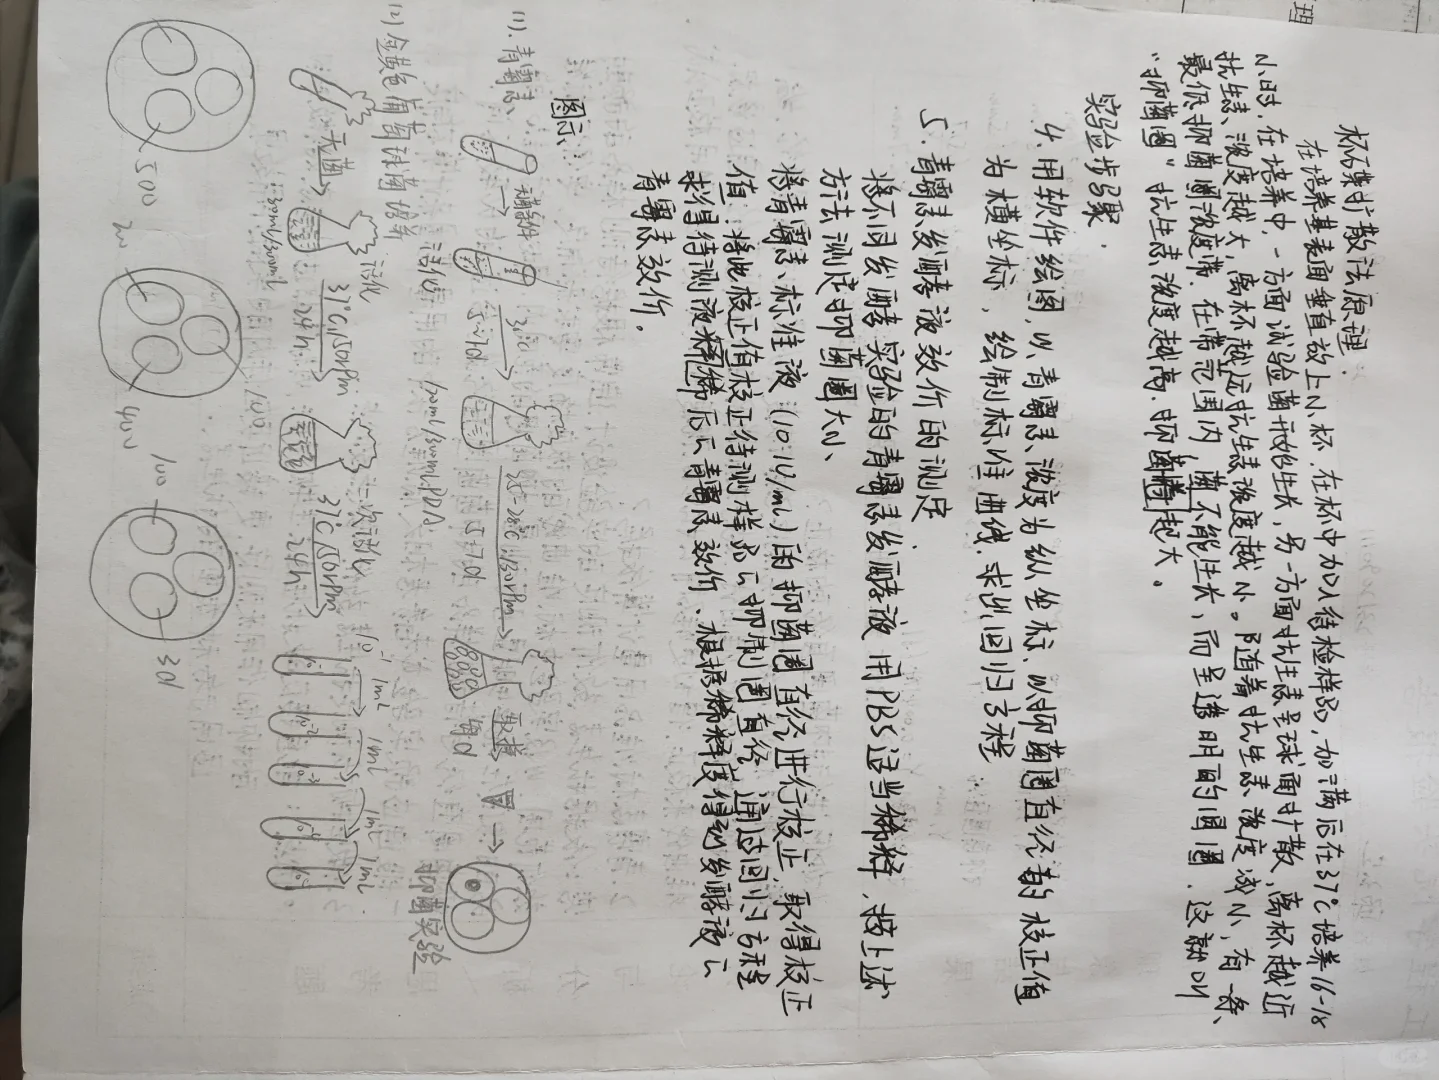 理
杯碟扩散法原理.
在培养基表面垂直放上小杯,在杯中加入待检样品,加满后在37℃培养16-18
小时,在培养中,一方面试验菌开始生长,另一方面抗生素呈球面扩散,离杯越近
抗生素浓度越大,离杯越远抗生素浓度越小。随着抗生素浓度减小,有一条、
最低抑菌圈浓度带.在带范围内,菌不能生长,而呈透明的圆圈.这就叫
“抑菌圈”抗生素浓度越高.抑菌圈越大。
实验步骤.
4.用软件绘图,以青霉素浓度为纵坐标、以抑菌圈直径的校正值
为横坐标,绘制标准曲线.求出回归方程
5.青霉素发酵液效价的测定
将不同发酵实验的青霉素发酵液用PBS适当稀释,按上述
方法测定抑菌圈大小、
将青霉素标准液(10.1U/mL)的抑菌圈直径进行校正,取得校正
值.将此校正值校正待测样品的抑制圈直径.通过回归方程
求得待测液稀释后的青霉素效价.根据稀释度得到发酵液的
青霉素效价.
图示
(1).青霉素、
30℃
5-7d
活化
60ml/300ml PDA
取样
每d
抑菌实验
(2)金黄色葡萄球菌培养
无菌
30ml/300ml
活化
37℃,150rpm
24h
二次活化
37℃,150rpm
24h
10⁻¹
1ml
1ml
1ml
1ml
500
200
400
100
100